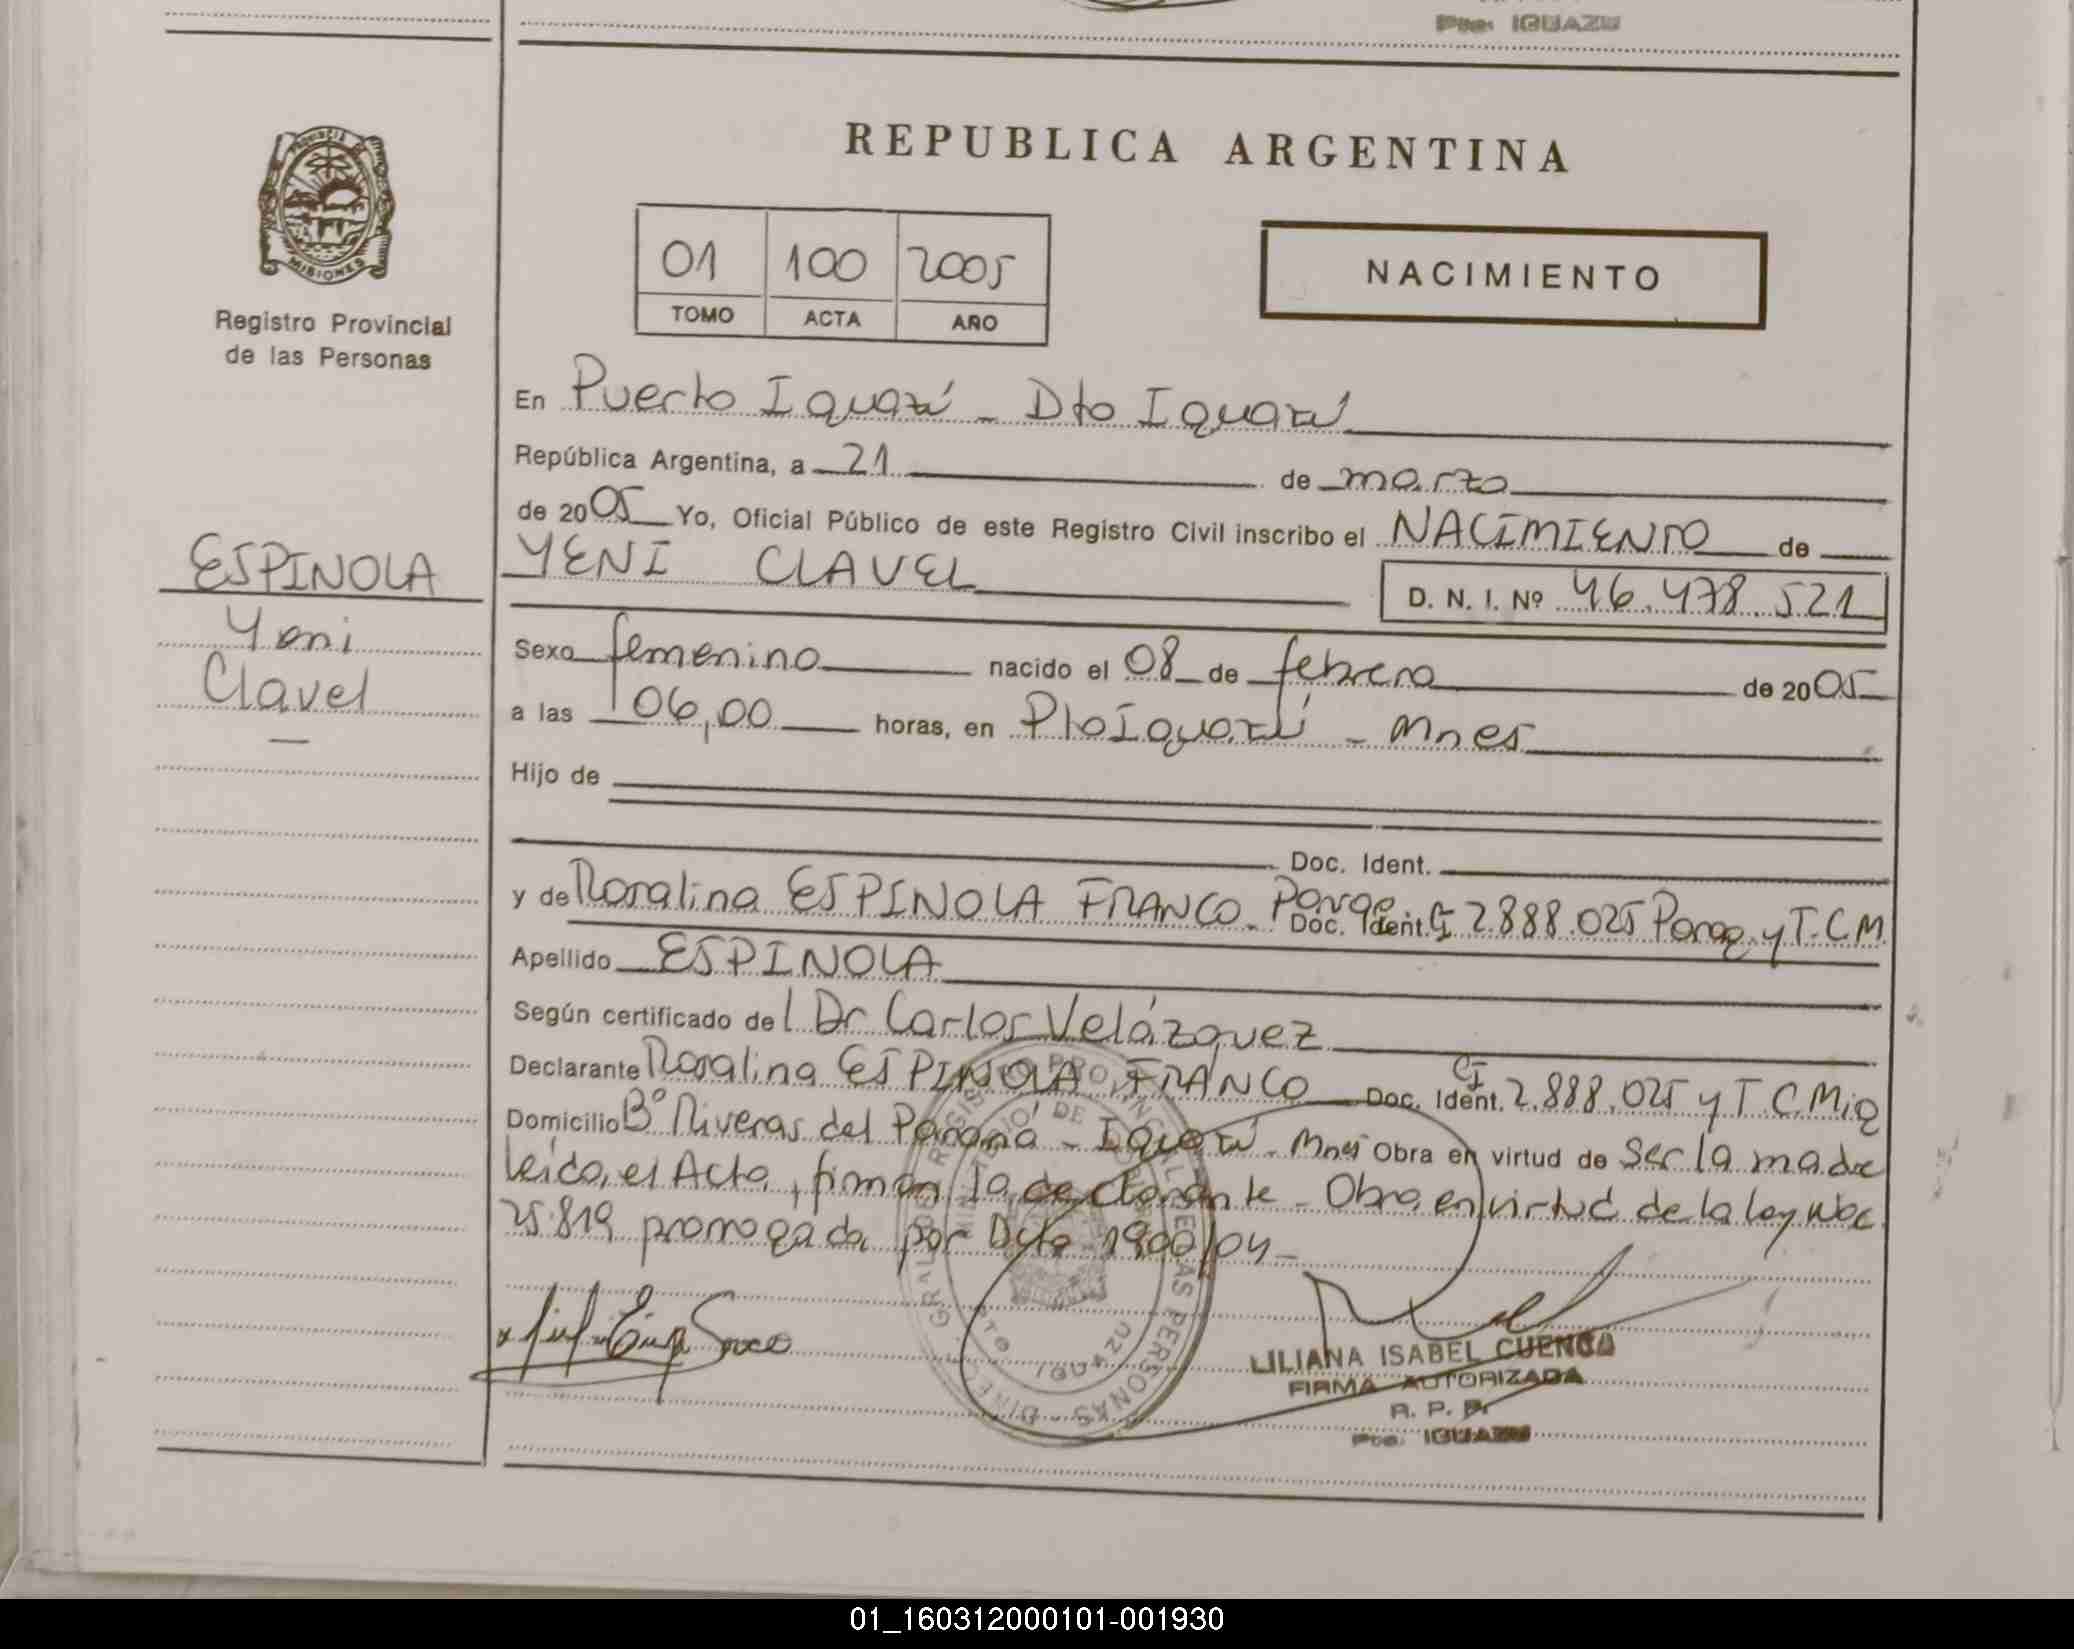 Pto. IGUAZU
REPUBLICA ARGENTINA
PROVINCIA DE
MISIONES
Registro Provincial
de las Personas
01 100 2005
TOMO ACTA AÑO
NACIMIENTO
En Puerto Iguazú - Dto Iguazú
República Argentina, a 21 de marzo
de 2005 Yo, Oficial Público de este Registro Civil inscribo el NACIMIENTO de
YENI CLAVEL
D. N. I. Nº 46.478.521
ESPINOLA
Yeni
Clavel
Sexo femenino nacido el 08 de febrero de 2005
a las 06,00 horas, en Pto Iguazú - Mnes
Hijo de
Doc. Ident.
y de Rosalina ESPINOLA FRANCO - Parag Doc. Ident. CI 2.888.025 Parag. y T.C.M.
Apellido ESPINOLA
Según certificado del Dr Carlos Velázquez
Declarante Rosalina ESPINOLA FRANCO Doc. Ident. CI 2.888.025 y T C Miq
Domicilio Bº Riveras del Paraná - Iguazú - Mnes Obra en virtud de ser la madre
leida el Acta, firman la declarante - Obra en virtud de la ley Nac
25.819 prorrogada por Dcto 1900/04 -
LILIANA ISABEL CUENCA
FIRMA AUTORIZADA
R. P. P.
Pto. IGUAZU
PTO IGUAZU
01_160312000101-001930